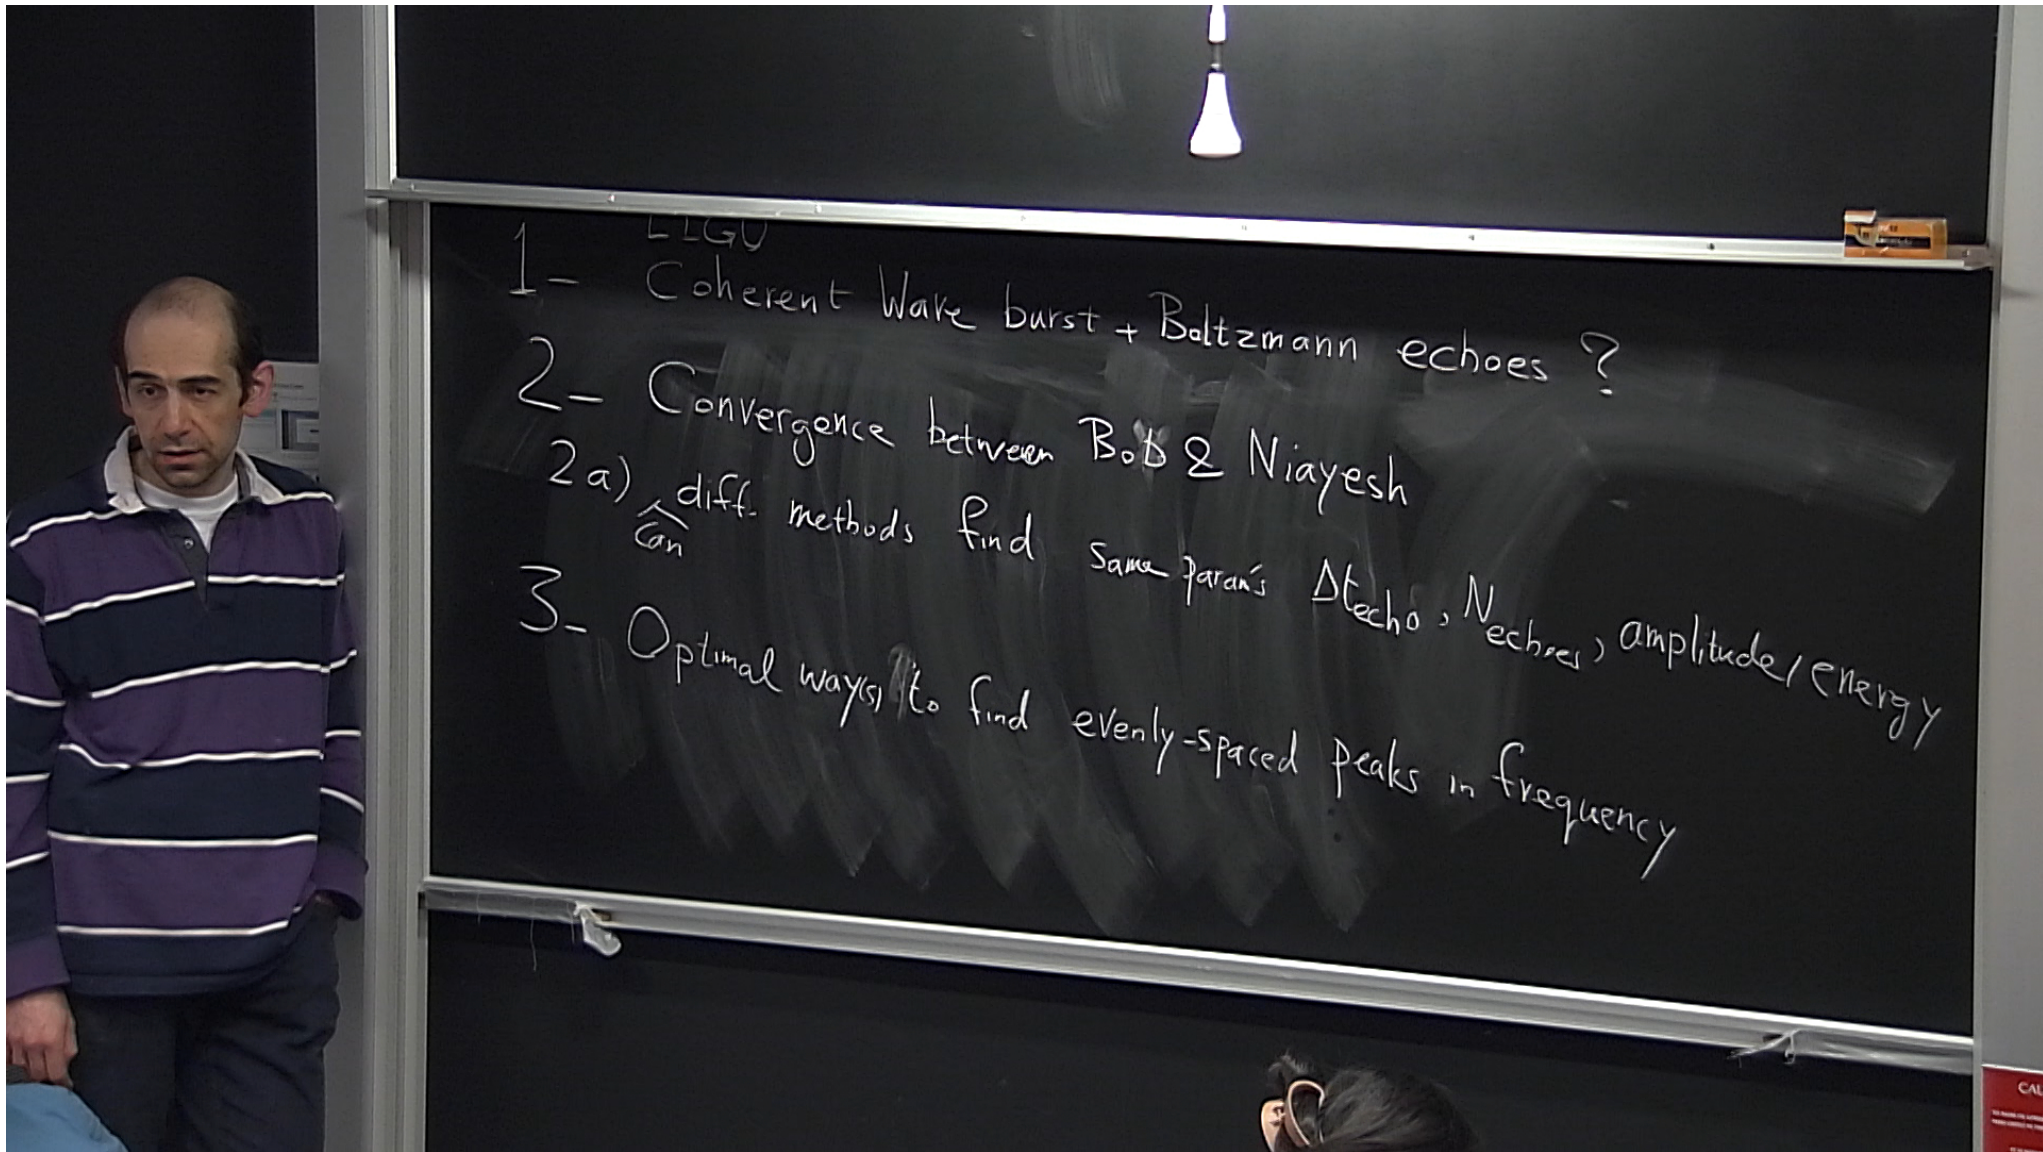 LIGO
1- Coherent Wave burst + Boltzmann echoes ?
2- Convergence between Bob & Niayesh
2a) can diff. methods find same param's Δt_echo, N_echoes, amplitude/energy
3- Optimal way(s) to find evenly-spaced peaks in frequency
CAU